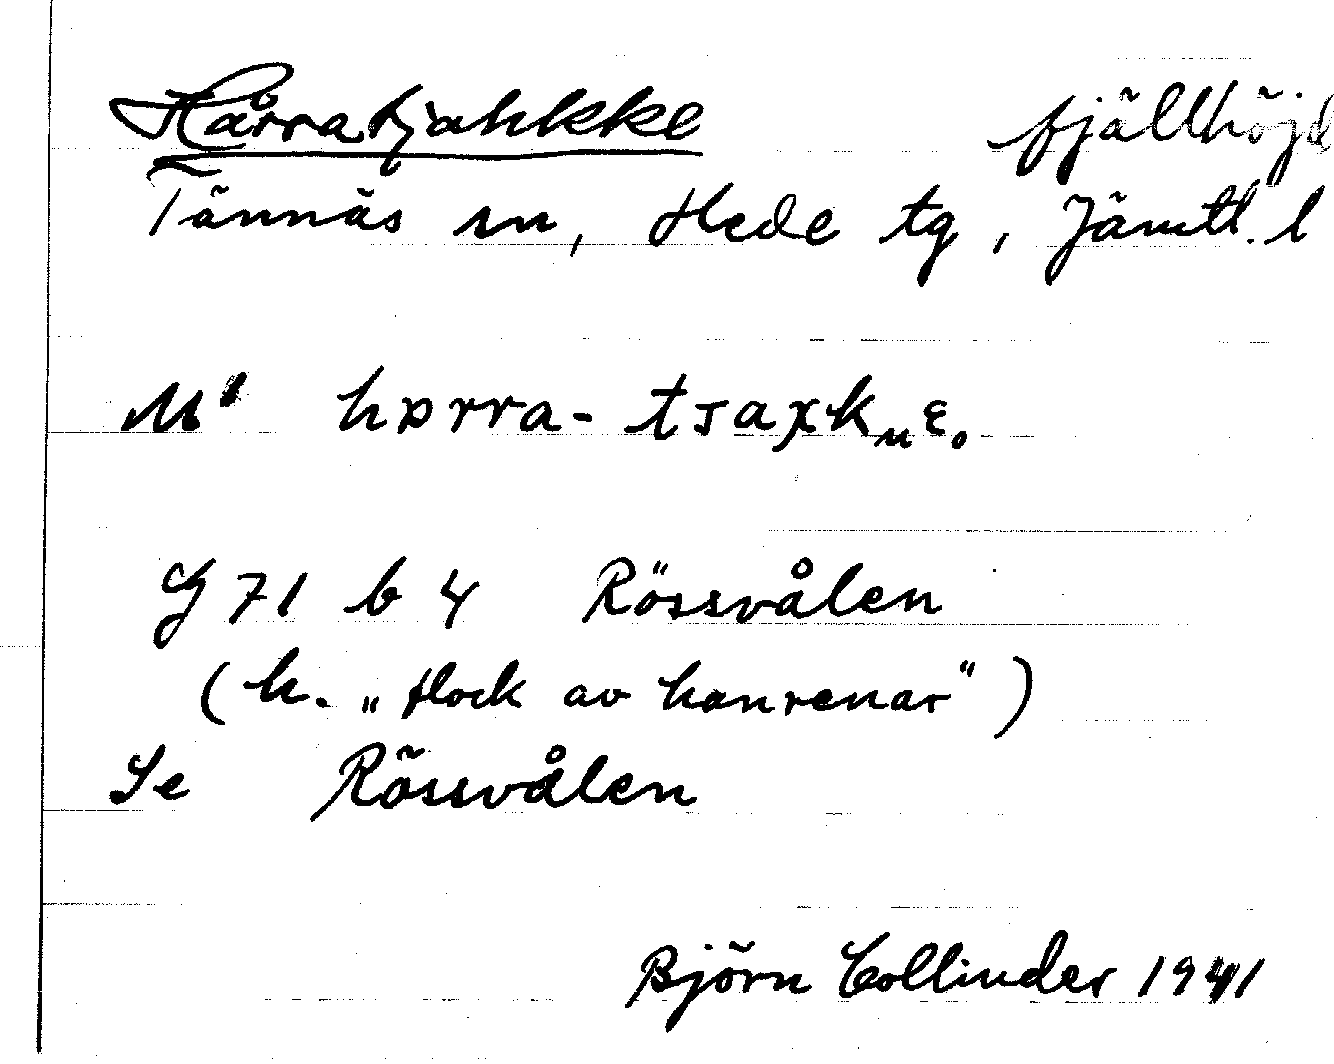 Hårratjahkke fjällhöjd
Tännäs sn, Hede tg, Jämtl. l
M' hɒrra-tsaχkₙε.
G 71 b 4 Rössvålen
(h. „flock av hanrenar")
Se Rössvålen
Björn Collinder 1941